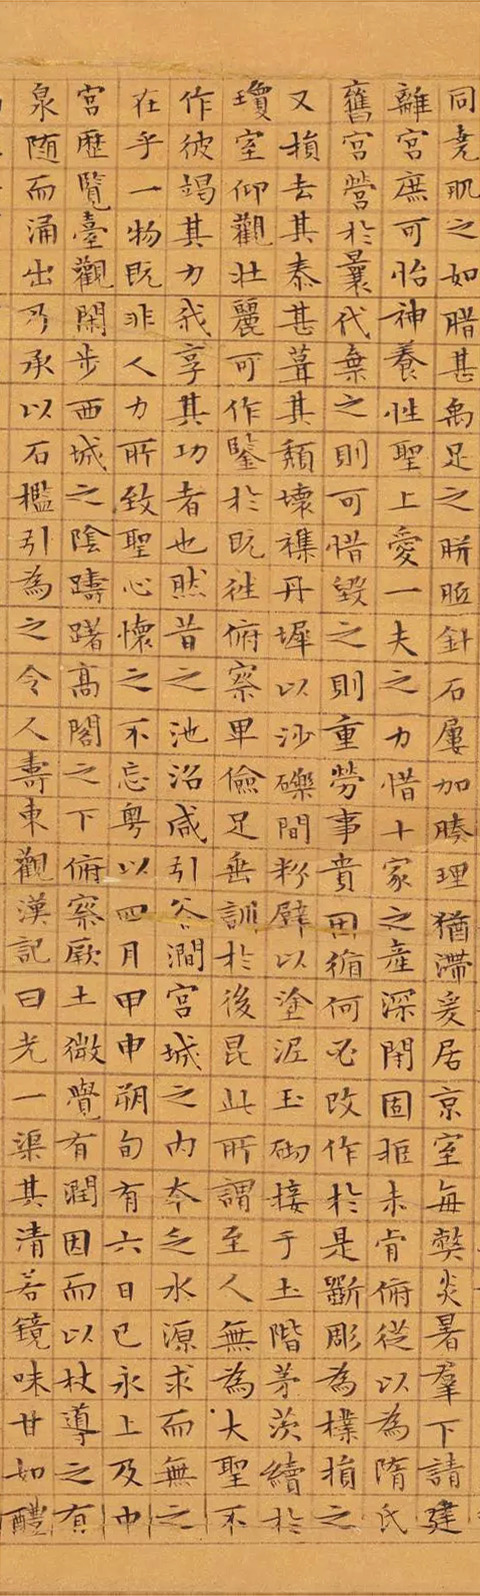 同堯肌之如腊甚禹足之胼胝針石屢加腠理猶滯爰居京室每弊炎暑羣下請建
離宮庶可怡神養性聖上愛一夫之力惜十家之產深閉固拒未肯俯從以為隋氏
舊宮營於曩代棄之則可惜毀之則重勞事貴因循何必改作於是斲彫為樸損之
又損去其泰甚葺其頹壞雜丹墀以沙礫間粉壁以塗泥玉砌接于土階茅茨續於
瓊室仰觀壯麗可作鑒於既往俯察卑儉足垂訓於後昆此所謂至人無為大聖不
作彼竭其力我享其功者也然昔之池沼咸引谷澗宮城之內本乏水源求而無之
在乎一物既非人力所致聖心懷之不忘粵以四月甲申朔旬有六日己永上及中
宮歷覽臺觀閑步西城之陰躊躇高閣之下俯察厥土微覺有潤因而以杖導之有
泉随而涌出乃承以石檻引為之令人壽東觀漢記曰光一渠其清若鏡味甘如醴